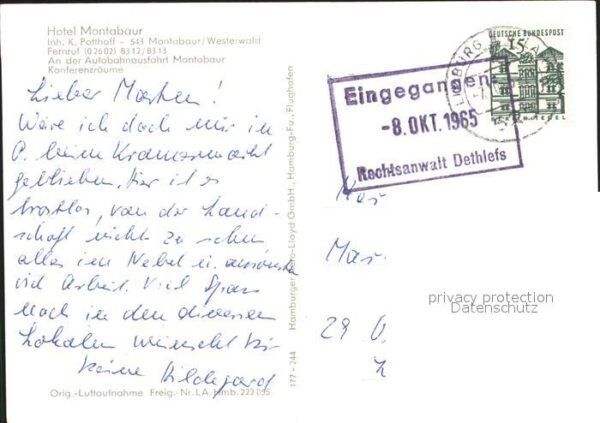 Hotel Montabaur
Inh. K. Potthoff - 543 Montabaur/Westerwald
Fernruf (02602) 8312/8313
An der Autobahnausfahrt Montabaur
Konferenzräume
Lieber Morten!
Wäre ich doch nur in
O. beim Kramermarkt
geblieben. Hier ist es
trostlos, von der Land-
schaft nichts zu sehen
alles im Nebel u. ansonsten
viel Arbeit. Viel Spass
noch in den diversen
Lokalen wünscht Dir
Deine Hildegard
Orig.-Luftaufnahme Freig.-Nr. L.A. Hmb. 222 055
177 - 244 Hamburger Aero-Lloyd GmbH., Hamburg-Fu., Flughafen
DEUTSCHE BUNDESPOST
15
TEGEL
LIMBURG
Eingegangen
-8. OKT. 1965
Rechtsanwalt Dethlefs
29 O
privacy protection
Datenschutz